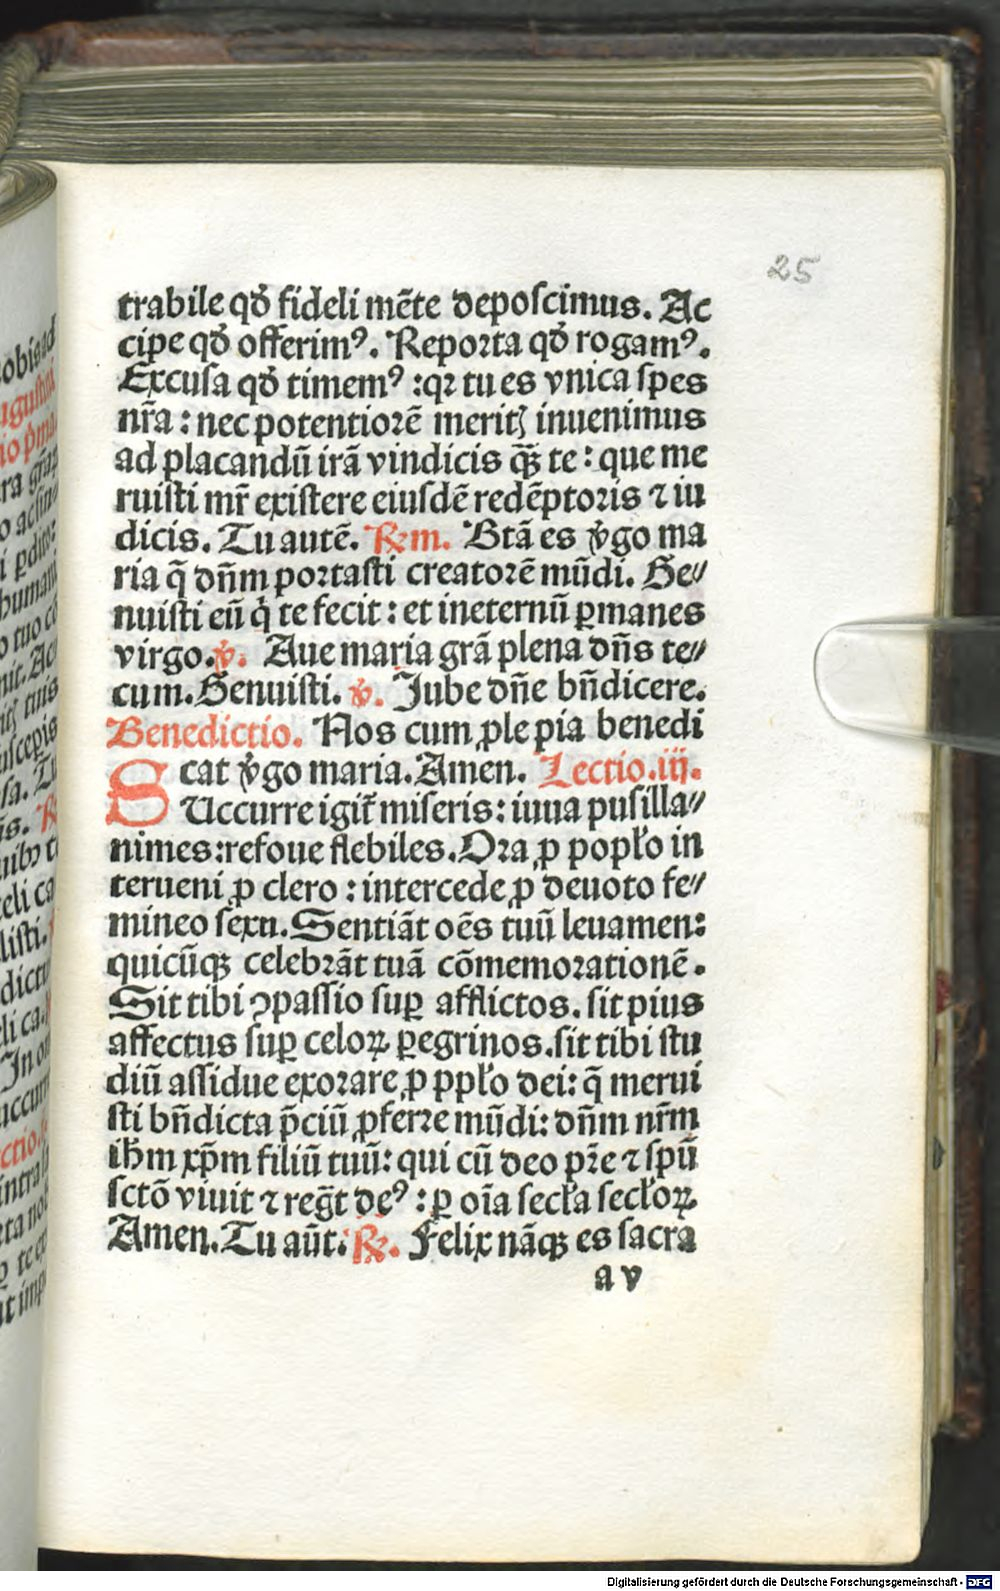 25
trabile qđ fideli mēte deposcimus. Ac
cipe qđ offerimꝰ. Reporta qđ rogamꝰ.
Excusa qđ timemꝰ :qꝛ tu es vnica spes
nr̄a : nec potentiorē meritꝭ inuenimus
ad placandū irā vindicis qꝫ̄ te : que me
ruisti mr̄ existere eiusdē redēptoris ⁊ iu
dicis. Tu autē. ℞m. Btā es v̓go ma
ria q̄ dn̄m portasti creatorē mūdi. Ge⸗
nuisti eū q̇ te fecit : et ineternū ꝑmanes
virgo. v̓. Aue maria grā plena dn̄s te⸗
cum. Genuisti. v̓. Iube dn̄e bn̄dicere.
Benedictio. Nos cum ꝓle pia benedi
cat v̓go maria. Amen. Lectio.iij.
SUccurre igit᷑ miseris: iuua pusilla⸗
nimes:refoue flebiles. Ora ꝓ popl̄o in
terueni ꝓ clero : intercede ꝓ deuoto fe⸗
mineo sexu. Sentiāt oēs tuū leuamen:
quicūqꝫ celebrāt tuā cōmemorationē.
Sit tibi ꝯpassio suꝑ afflictos. sit pius
affectus suꝑ celoꝝ ꝑegrinos. sit tibi stu
diū assidue exorare ꝓ ppl̄o dei: q̄ merui
sti bn̄dicta p̄ciū ꝓferre mūdi: dn̄m nr̄m
ih̄m xp̄m filiū tuū: qui cū deo pr̄e ⁊ spū
sctō viuit ⁊ reḡt deꝰ : ꝑ oīa secl̄a secl̄oꝝ
Amen. Tu aūt. ℞. Felix nāqꝫ es sacra
a v
Digitalisierung gefördert durch die Deutsche Forschungsgemeinschaft - DFG